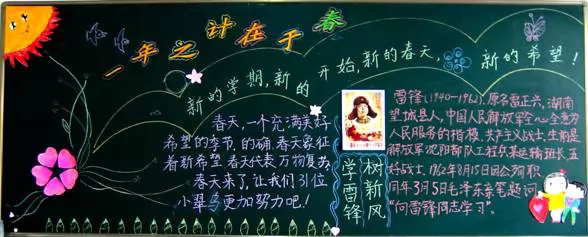 一年之计在于春
新的学期,新的开始,新的春天,新的希望!
春天,一个充满美好
希望的季节,的确,春天象征
着新希望,春天代表万物复苏
春天来了,让我们引位
小翠鸟更加努力吧!
学雷锋
树新风
雷锋(1940-1962),原名雷正兴,湖南
望城县人,中国人民解放军全心全意为
人民服务的楷模,共产主义战士,生前是
解放军沈阳部队工程兵某运输班长五
好战士,1962年8月15日因公殉职
同年3月5日毛泽东亲笔题词
"向雷锋同志学习"。